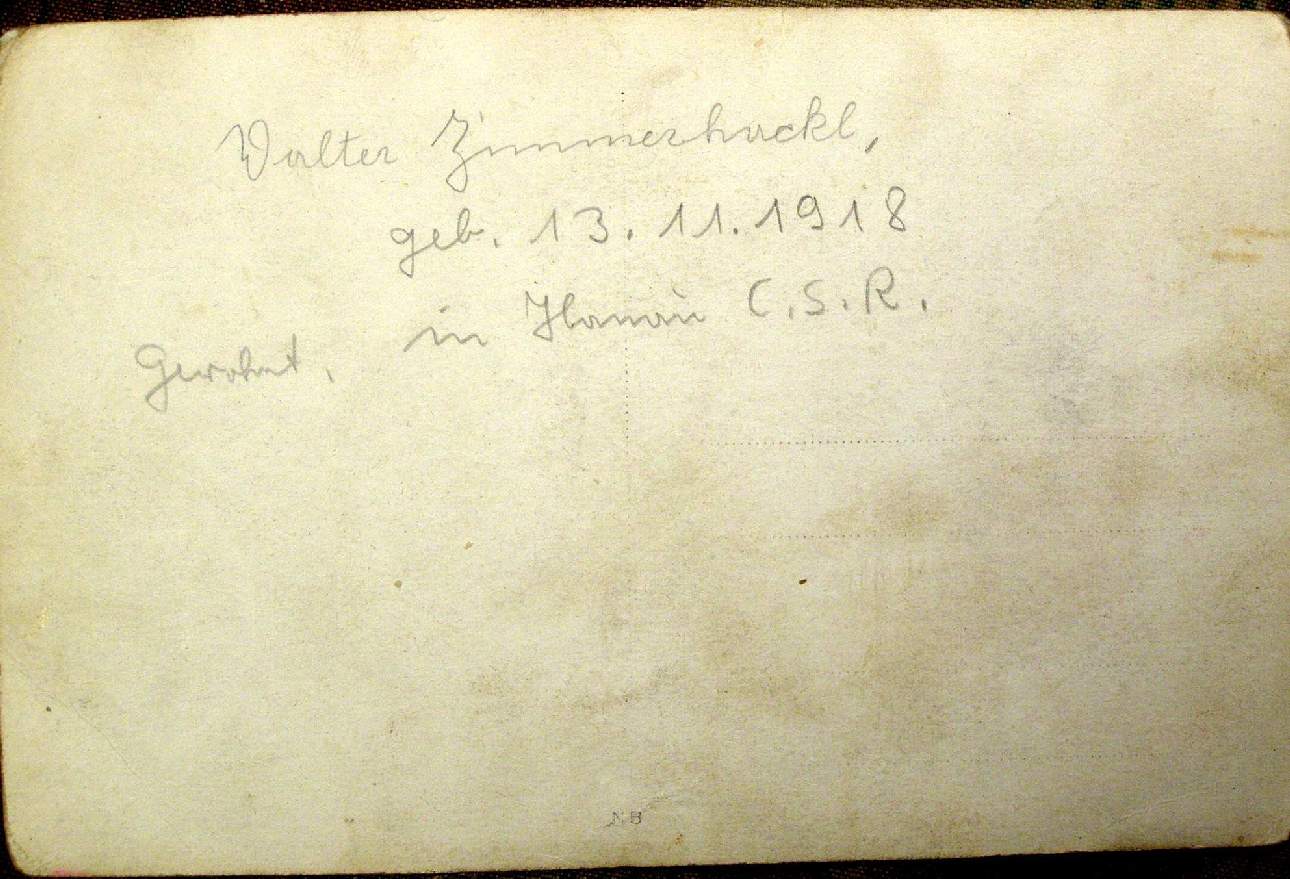 Walter Zimmerhackl,
geb. 13. 11. 1918
in Hanau C.S.R.
Gewohnt,
NB